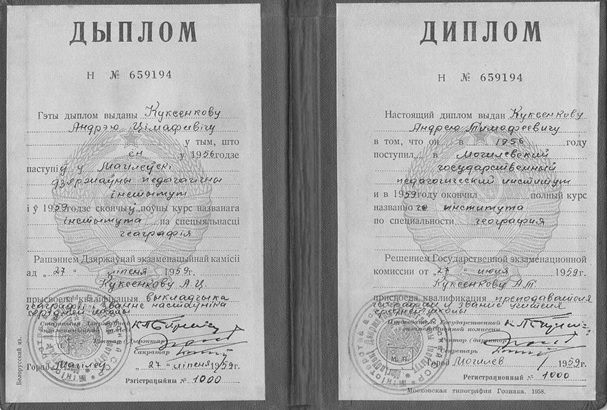 ДЫПЛОМ
Н № 659194
Гэты дыплом выданы Куксенкову
Андрэю Цімафеевічу
у тым, што
ён у 1956 годзе
паступіў у Магілеўскі
дзяржаўны педагагічны
інстытут
і ў 1959 годзе скончыў поўны курс названага
інстытута па спецыяльнасці
геаграфія
Рашэннем Дзяржаўнай экзаменацыйнай камісіі
ад „27“ ліпеня 1959 г.
Куксенкову А.Ц.
прысвоена кваліфікацыя выкладчыка
геаграфіі і званне настаўніка
сярэдняй школы
Старшыня Дзяржаўнай
экзаменацыйнай камісіі
Сакратар
Горад Магілеў 27 ліпеня 1959 г.
Рэгістрацыйны № 1000
Беларускай яз.
ДИПЛОМ
Н № 659194
Настоящий диплом выдан Куксенкову
Андрею Тимофеевичу
в том, что он в 1956 году
поступил в Могилевский
государственный
педагогический институт
и в 1959 году окончил полный курс
названного института
по специальности география
Решением Государственной экзаменационной
комиссии от „27“ июля 1959 г.
Куксенкову А.Т.
присвоена квалификация преподавателя
географии и звание учителя
средней школы
Председатель Государственной
экзаменационной комиссии
Секретарь
М. П.
Город Могилев 1959 г.
Регистрационный № 1000
Московская типография Гознака. 1958.